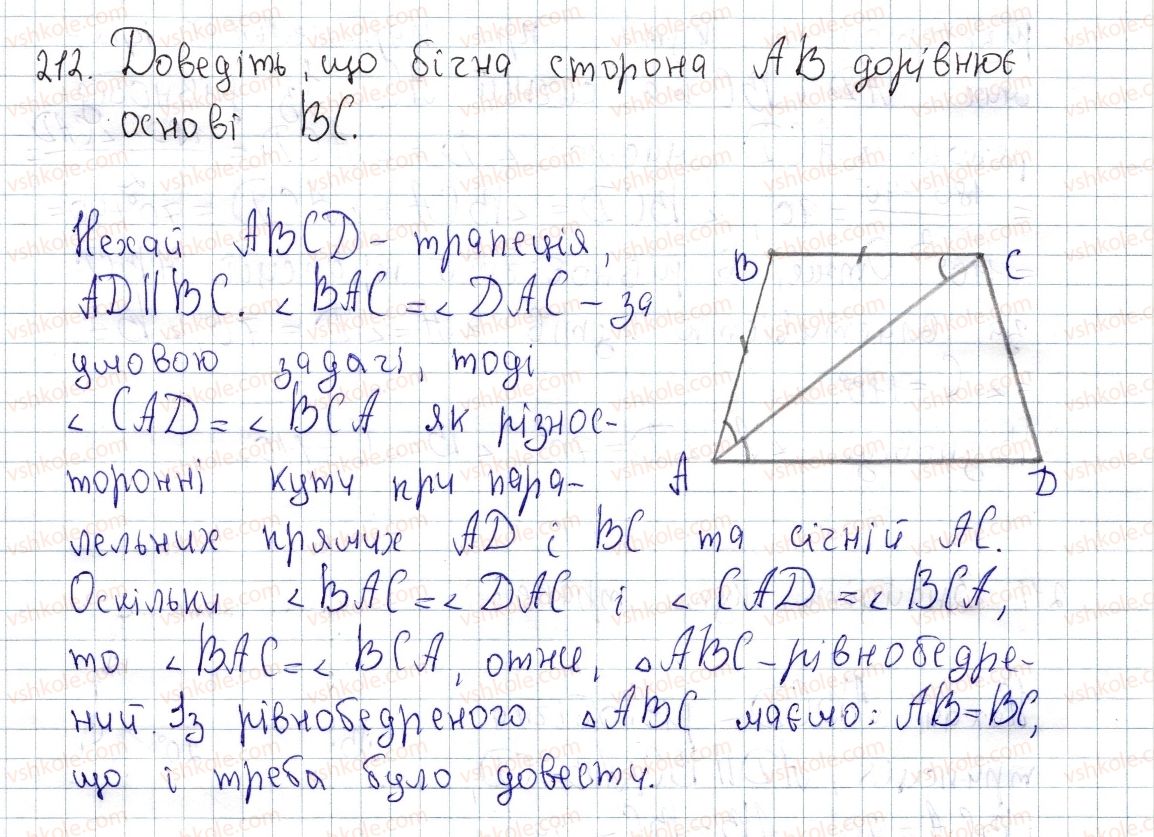 212. Доведіть, що бічна сторона AB дорівнює
основі BC.
Нехай ABCD – трапеція,
AD || BC. ∠BAC = ∠DAC – за
умовою задачі, тоді
∠CAD = ∠BCA як різнос-
торонні кути при пара-
лельних прямих AD і BC та січній AC.
Оскільки ∠BAC = ∠DAC і ∠CAD = ∠BCA,
то ∠BAC = ∠BCA, отже, △ABC – рівнобедре-
ний. Із рівнобедреного △ABC маємо: AB = BC,
що і треба було довести.
B
C
A
D
vshkole.com